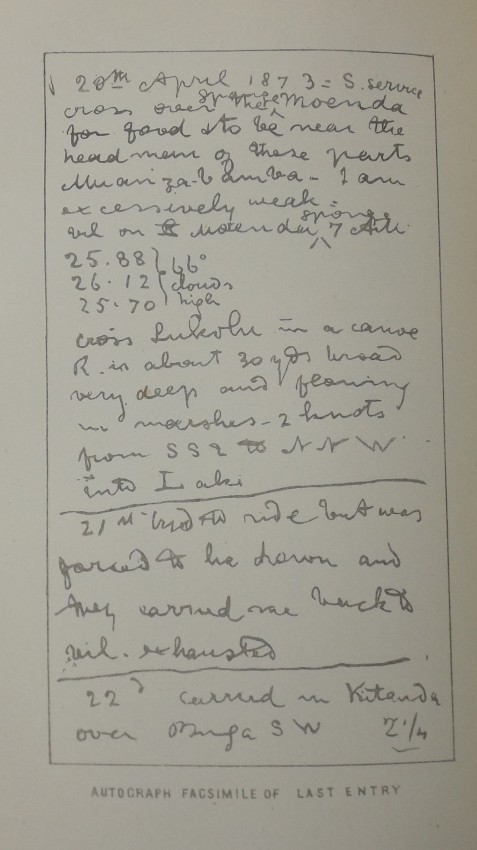 20th April 1873 = S. service
cross over sponge the Moenda
for food & to be near the
headman of these parts
Muanzabamba - I am
excessively weak =
vil on Moenda sponge 7 A M.
25.88 } 66°
26.12 clouds
25.70 high
cross Lukolu in a canoe
R. is about 30 yds broad
very deep and flowing
in marshes - 2 knots
from S S E to N N W
into Lake
21st tried to ride but was
forced to lie down and
they carried me back to
vil. exhausted
22d carried in Kitanda
over Buga S W 2 1/4
AUTOGRAPH FACSIMILE OF LAST ENTRY